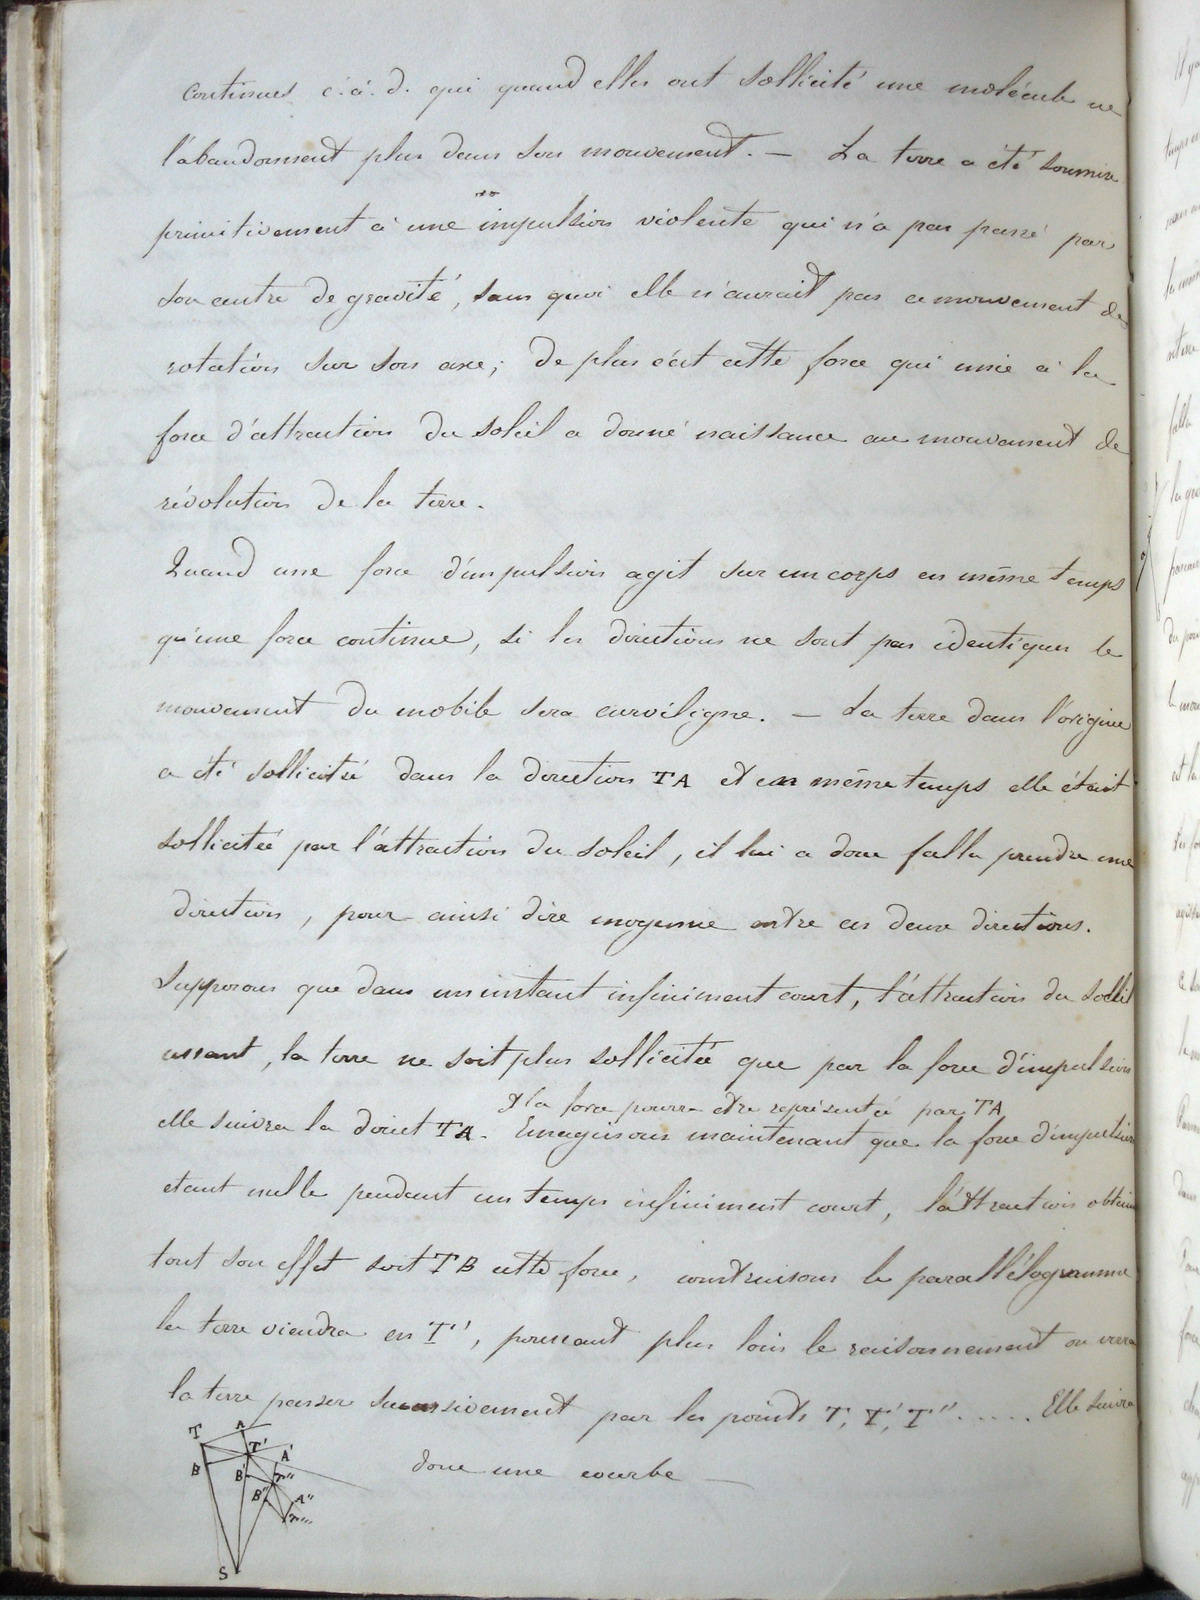 continues c.à.d. qui quand elles ont sollicité une molécule ne
l'abandonnent plus dans son mouvement. — La terre a été soumise
primitivement à une impulsion violente qui n'a pas passé par
son centre de gravité, sans quoi elle n'aurait pas ce mouvement de
rotation sur son axe; de plus c'est cette force qui unie à la
force d'attraction du soleil a donné naissance au mouvement de
révolution de la terre.
Quand une force d'impulsion agit sur un corps en même temps
qu'une force continue, si les directions ne sont pas identiques le
mouvement du mobile sera curviligne. — La terre dans l'origine
a été sollicitée dans la direction TA et en même temps elle était
sollicitée par l'attraction du soleil, il lui a donc fallu prendre une
direction, pour ainsi dire moyenne entre ces deux directions.
Supposons que dans un instant infiniment court, l'attraction du soleil
cessant, la terre ne soit plus sollicitée que par la force d'impulsion
et la force pourra etre représentée par TA
elle suivra la direct TA. Imaginons maintenant que la force d'impulsion
etant nulle pendant un temps infiniment court, l'attraction obtienne
tout son effet soit TB cette force, construisons le parallélogramme
la terre viendra en T', poussant plus loin le raisonnement on verra
la terre passer successivement par les points T, T', T''...... Elle suivra
donc une courbe —
T A T' A'
B B' T''
B'' A''
T'''
S